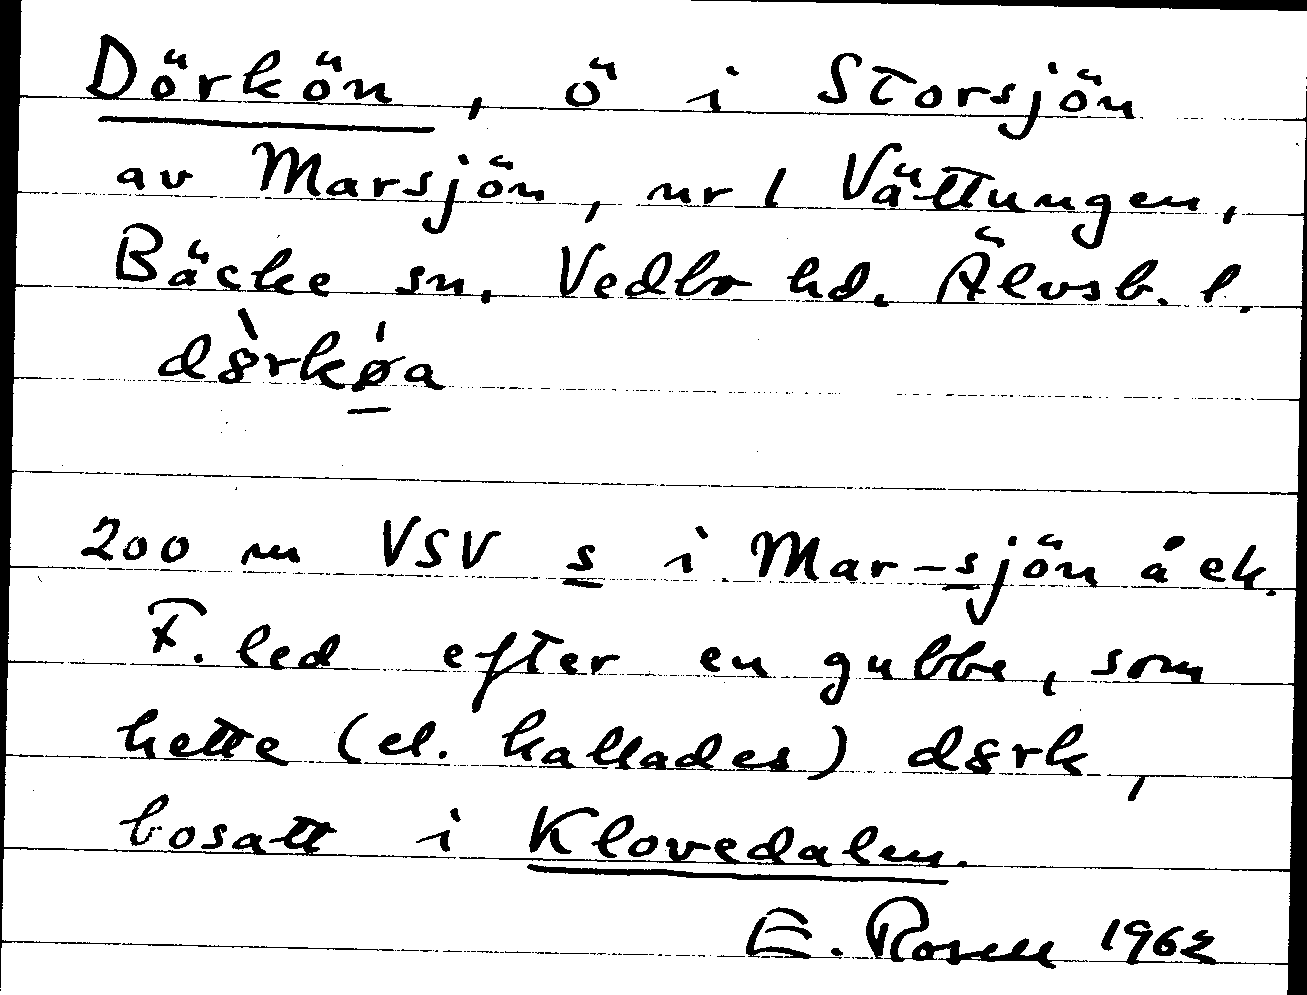 Dörkön, ö i Storsjön
av Marsjön, nr 1 Vättungen,
Bäcke sn. Vedbo hd. Älvsb. l.
d8̀rkǿa
200 m VSV s i Mar-sjön å ek.
F. led efter en gubbe, som
hette (el. kallades) d8rk,
bosatt i Klovedalen.
E. Rosell 1962